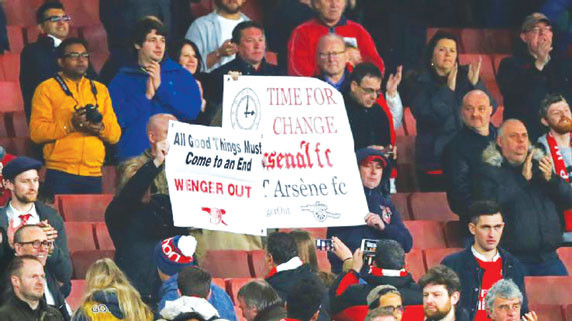 All Good Things Must
Come to an End
WENGER OUT
TIME FOR
CHANGE
Arsenal fc
Arsène fc